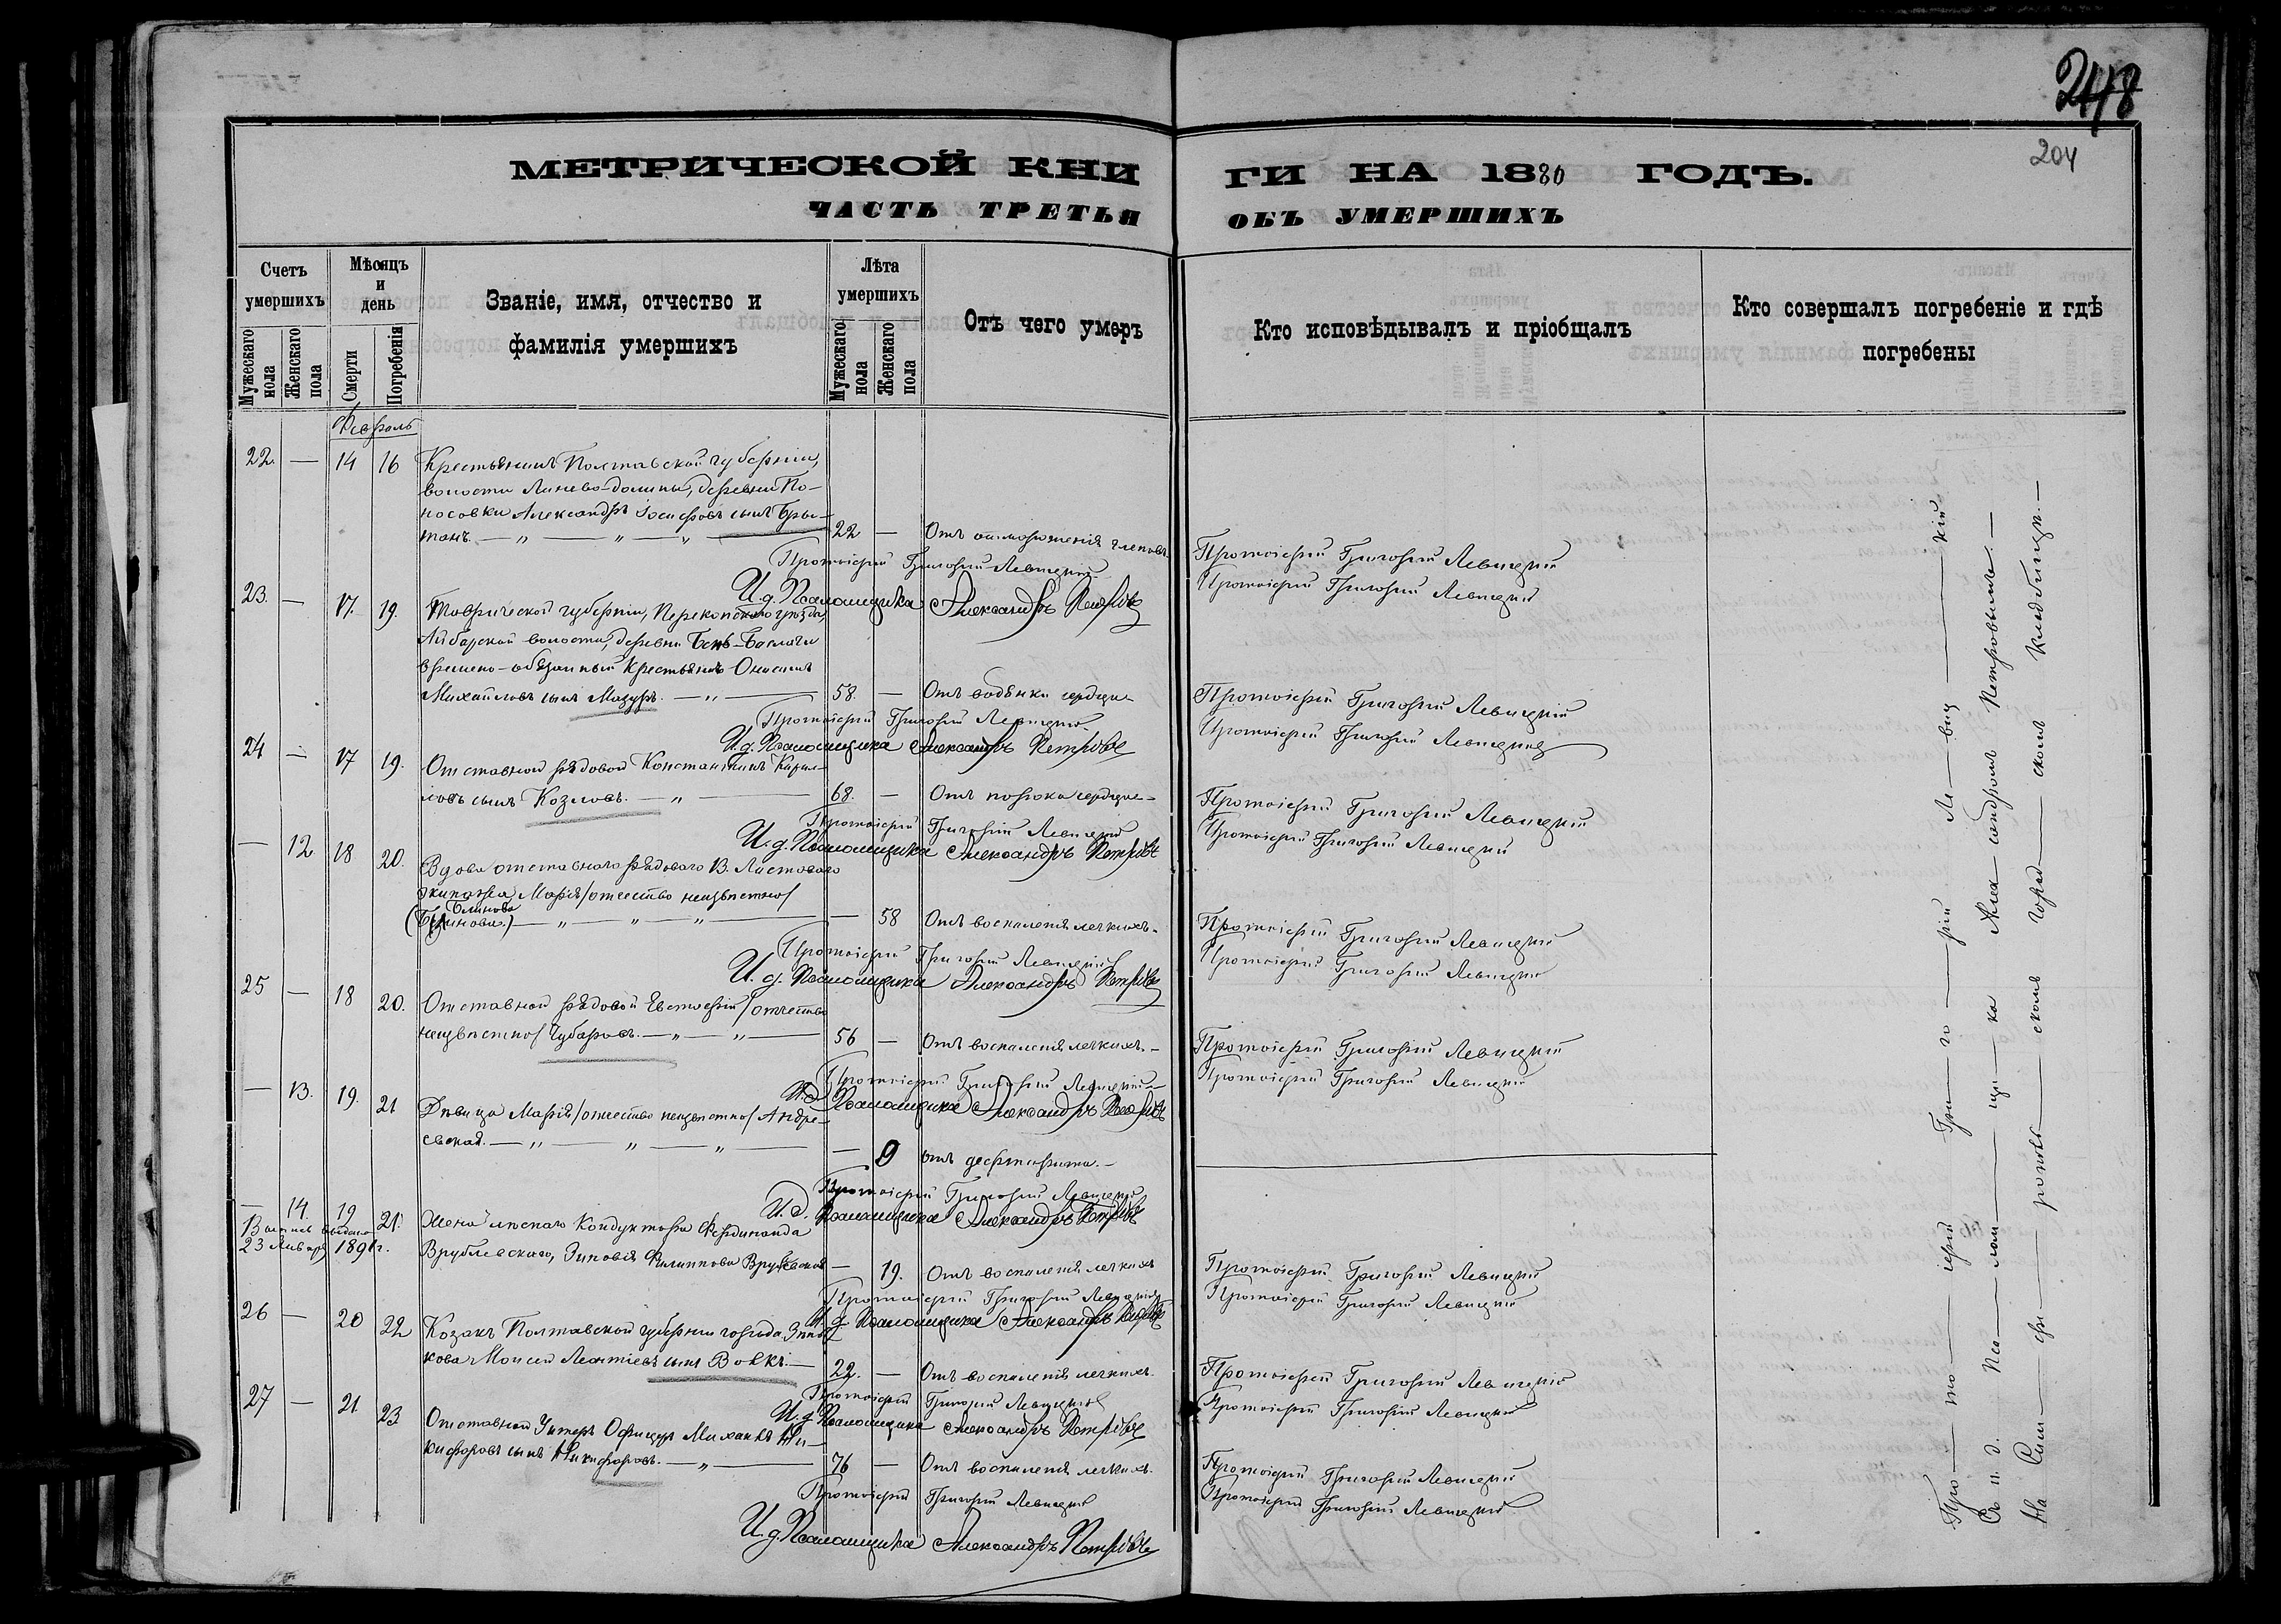 248
204
МЕТРИЧЕСКОЙ КНИГИ НА 1880 ГОДЪ.
ЧАСТЬ ТРЕТЬЯ ОБЪ УМЕРШИХЪ
Счетъ умершихъ
Мужескаго пола
Женскаго пола
Мѣсяцъ и день
Смерти
Погребенія
Званіе, имя, отчество и фамилія умершихъ
Лѣта умершихъ
Мужескаго пола
Женскаго пола
Отъ чего умеръ
Кто исповѣдывалъ и пріобщалъ
Кто совершалъ погребеніе и гдѣ погребены
Февраль
22. — 14 16 Крестьянинъ Полтавской губерніи,
волости Линево-долины, деревни По-
носовки Александръ Іосифовъ сынъ Бры-
танъ. — „ — „ — „ — 22 — Отъ отмороженія членовъ.
Протоіерей Григорій Левицкій
И.д. Псаломщика Александръ Петровъ
Протоіерей Григорій Левицкій
Протоіерей Григорій Левицкій
23. — 17. 19. Таврической губерніи, Перекопскаго уѣзда,
Айбарской волости, деревни
временно-обязанный крестьянинъ Онисимъ
Михайловъ сынъ Мазуръ. — „ — 58. — Отъ водянки сердца
Протоіерей Григорій Левицкій
И.д. Псаломщика Александръ Петровъ
Протоіерей Григорій Левицкій
Протоіерей Григорій Левицкій
24 — 17 19. Отставной рядовой Константинъ Кирил-
ловъ сынъ Козловъ. — „ — 68. — Отъ порока сердца
Протоіерей Григорій Левицкій
И.д. Псаломщика Александръ Петровъ
Протоіерей Григорій Левицкій
Протоіерей Григорій Левицкій
— 12 18 20. Вдова отставнаго рядоваго В. Ластоваго
экипажа Марія /отчество неизвѣстно/
Блинова
— „ — „ — „ — — 58 Отъ воспаленія легкихъ.
Протоіерей Григорій Левицкій
И.д. Псаломщика Александръ Петровъ
Протоіерей Григорій Левицкій
Протоіерей Григорій Левицкій
25 — 18 20. Отставной рядовой Евстафій /отчество
неизвѣстно/ Чубаровъ. — „ — „ — 56 — Отъ воспаленія легкихъ. —
Протоіерей Григорій Левицкій
И.д. Псаломщика Александръ Петровъ
Протоіерей Григорій Левицкій
Протоіерей Григорій Левицкій
— 13. 19. 21 Дѣвица Марія /отчество неизвѣстно/ Андре-
евская. — „ — „ — „ — — 9 отъ дифтерита. —
Протоіерей Григорій Левицкій
И.д. Псаломщика Александръ Петровъ
— 14. 19 21. Жена лѣснаго Кондуктора Фердинанда
Врублевскаго, Зиновія Филиппова Врублевская — 19. Отъ воспаленія легкихъ
выдана
23 Января 1891 г.
Протоіерей Григорій Левицкій
И.д. Псаломщика Александръ Петровъ
Протоіерей Григорій Левицкій
Протоіерей Григорій Левицкій
26 — 20 22 Козакъ Полтавской губерніи города Зинь-
кова Моисей Леонтіевъ сынъ Вовкъ. — 22. — Отъ воспаленія легкихъ.
Протоіерей Григорій Левицкій
И.д. Псаломщика Александръ Петровъ
Протоіерей Григорій Левицкій
Протоіерей Григорій Левицкій
27 — 21 23 Отставной Унтеръ Офицеръ Михаилъ Ни-
кифоровъ сынъ Никифоровъ. — „ — 76 — Отъ воспаленія легкихъ.
Протоіерей Григорій Левицкій
И.д. Псаломщика Александръ Петровъ
Протоіерей Григорій Левицкій
Протоіерей Григорій Левицкій
Про — то — іерей Гри — го — рій Ле — виц — кій
Съ и. д. Пса — лом — щи — ка Алек — сандромъ Петровымъ. —
На Сим — фе — рополь — скомъ город — скомъ кладбищѣ. —